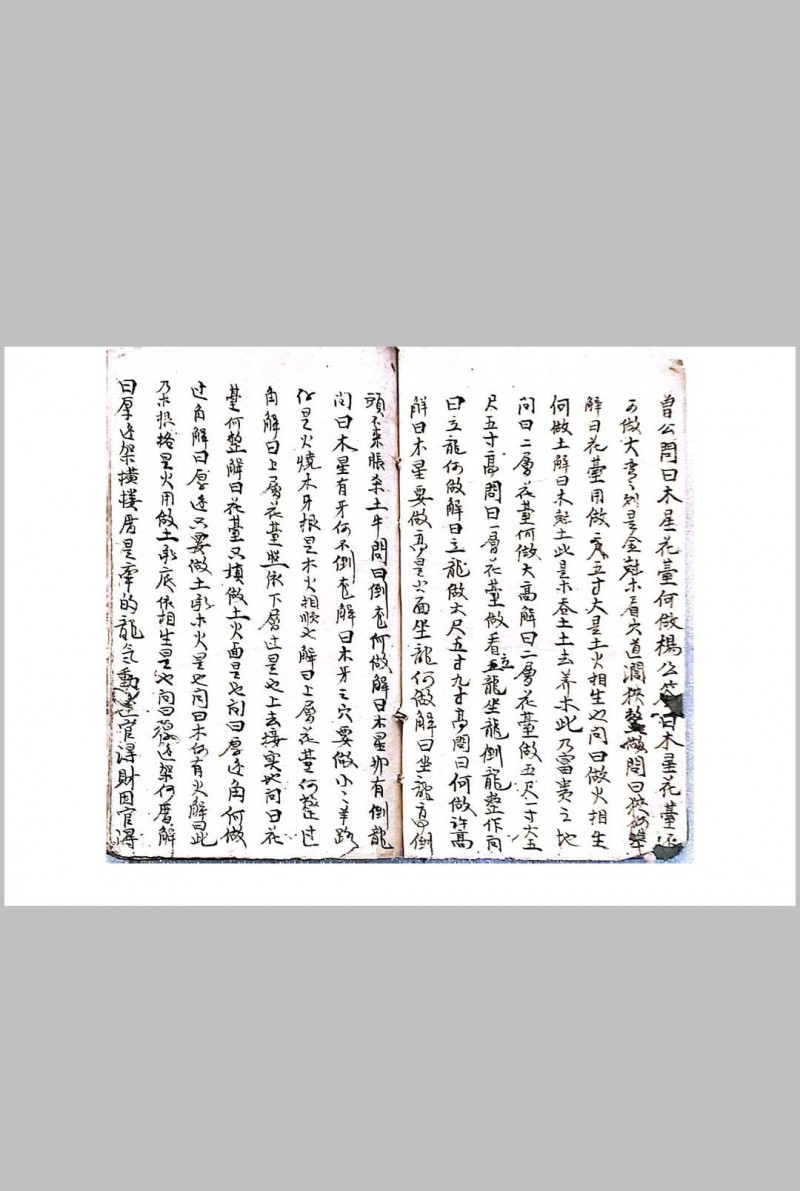 曾公問曰木星花臺何做楊公答曰木星花臺
可做大 是金 木看穴道濶狹 做問曰
解曰花臺用做 五寸大是土火相生也問曰做火相生
何做土解曰木尅土此是木吞土土去养木此乃富貴之地
問曰二層花臺何做大高解曰二層花臺做五尺一寸大五
尺五寸高問曰一層花臺做看立龍坐龍倒龍整作问
曰立龍何做解曰立龍做大尺五寸九寸高問曰何做許高
解曰木星要做高是火面坐龍何做解曰坐龍高倒
頭不来脹杀土牛問曰倒 何做解曰木星那有倒龍
问曰木星有牙何不倒 解曰木牙之穴要做小之羊路
仔是火燒木牙根是木火相順也解曰上層花臺何整过
角解曰上層花臺照依下層过是也上去接实地问曰花
臺何整解曰花臺又填做土火面是也问曰厚边角何做
过角解曰厚边只要做土承木火是也问曰木何有火解曰此
乃木根 是火用做土承底依相生是也问曰 边架何厝解
曰厚边架横楼厝是牽的龍气動 官得財因官得